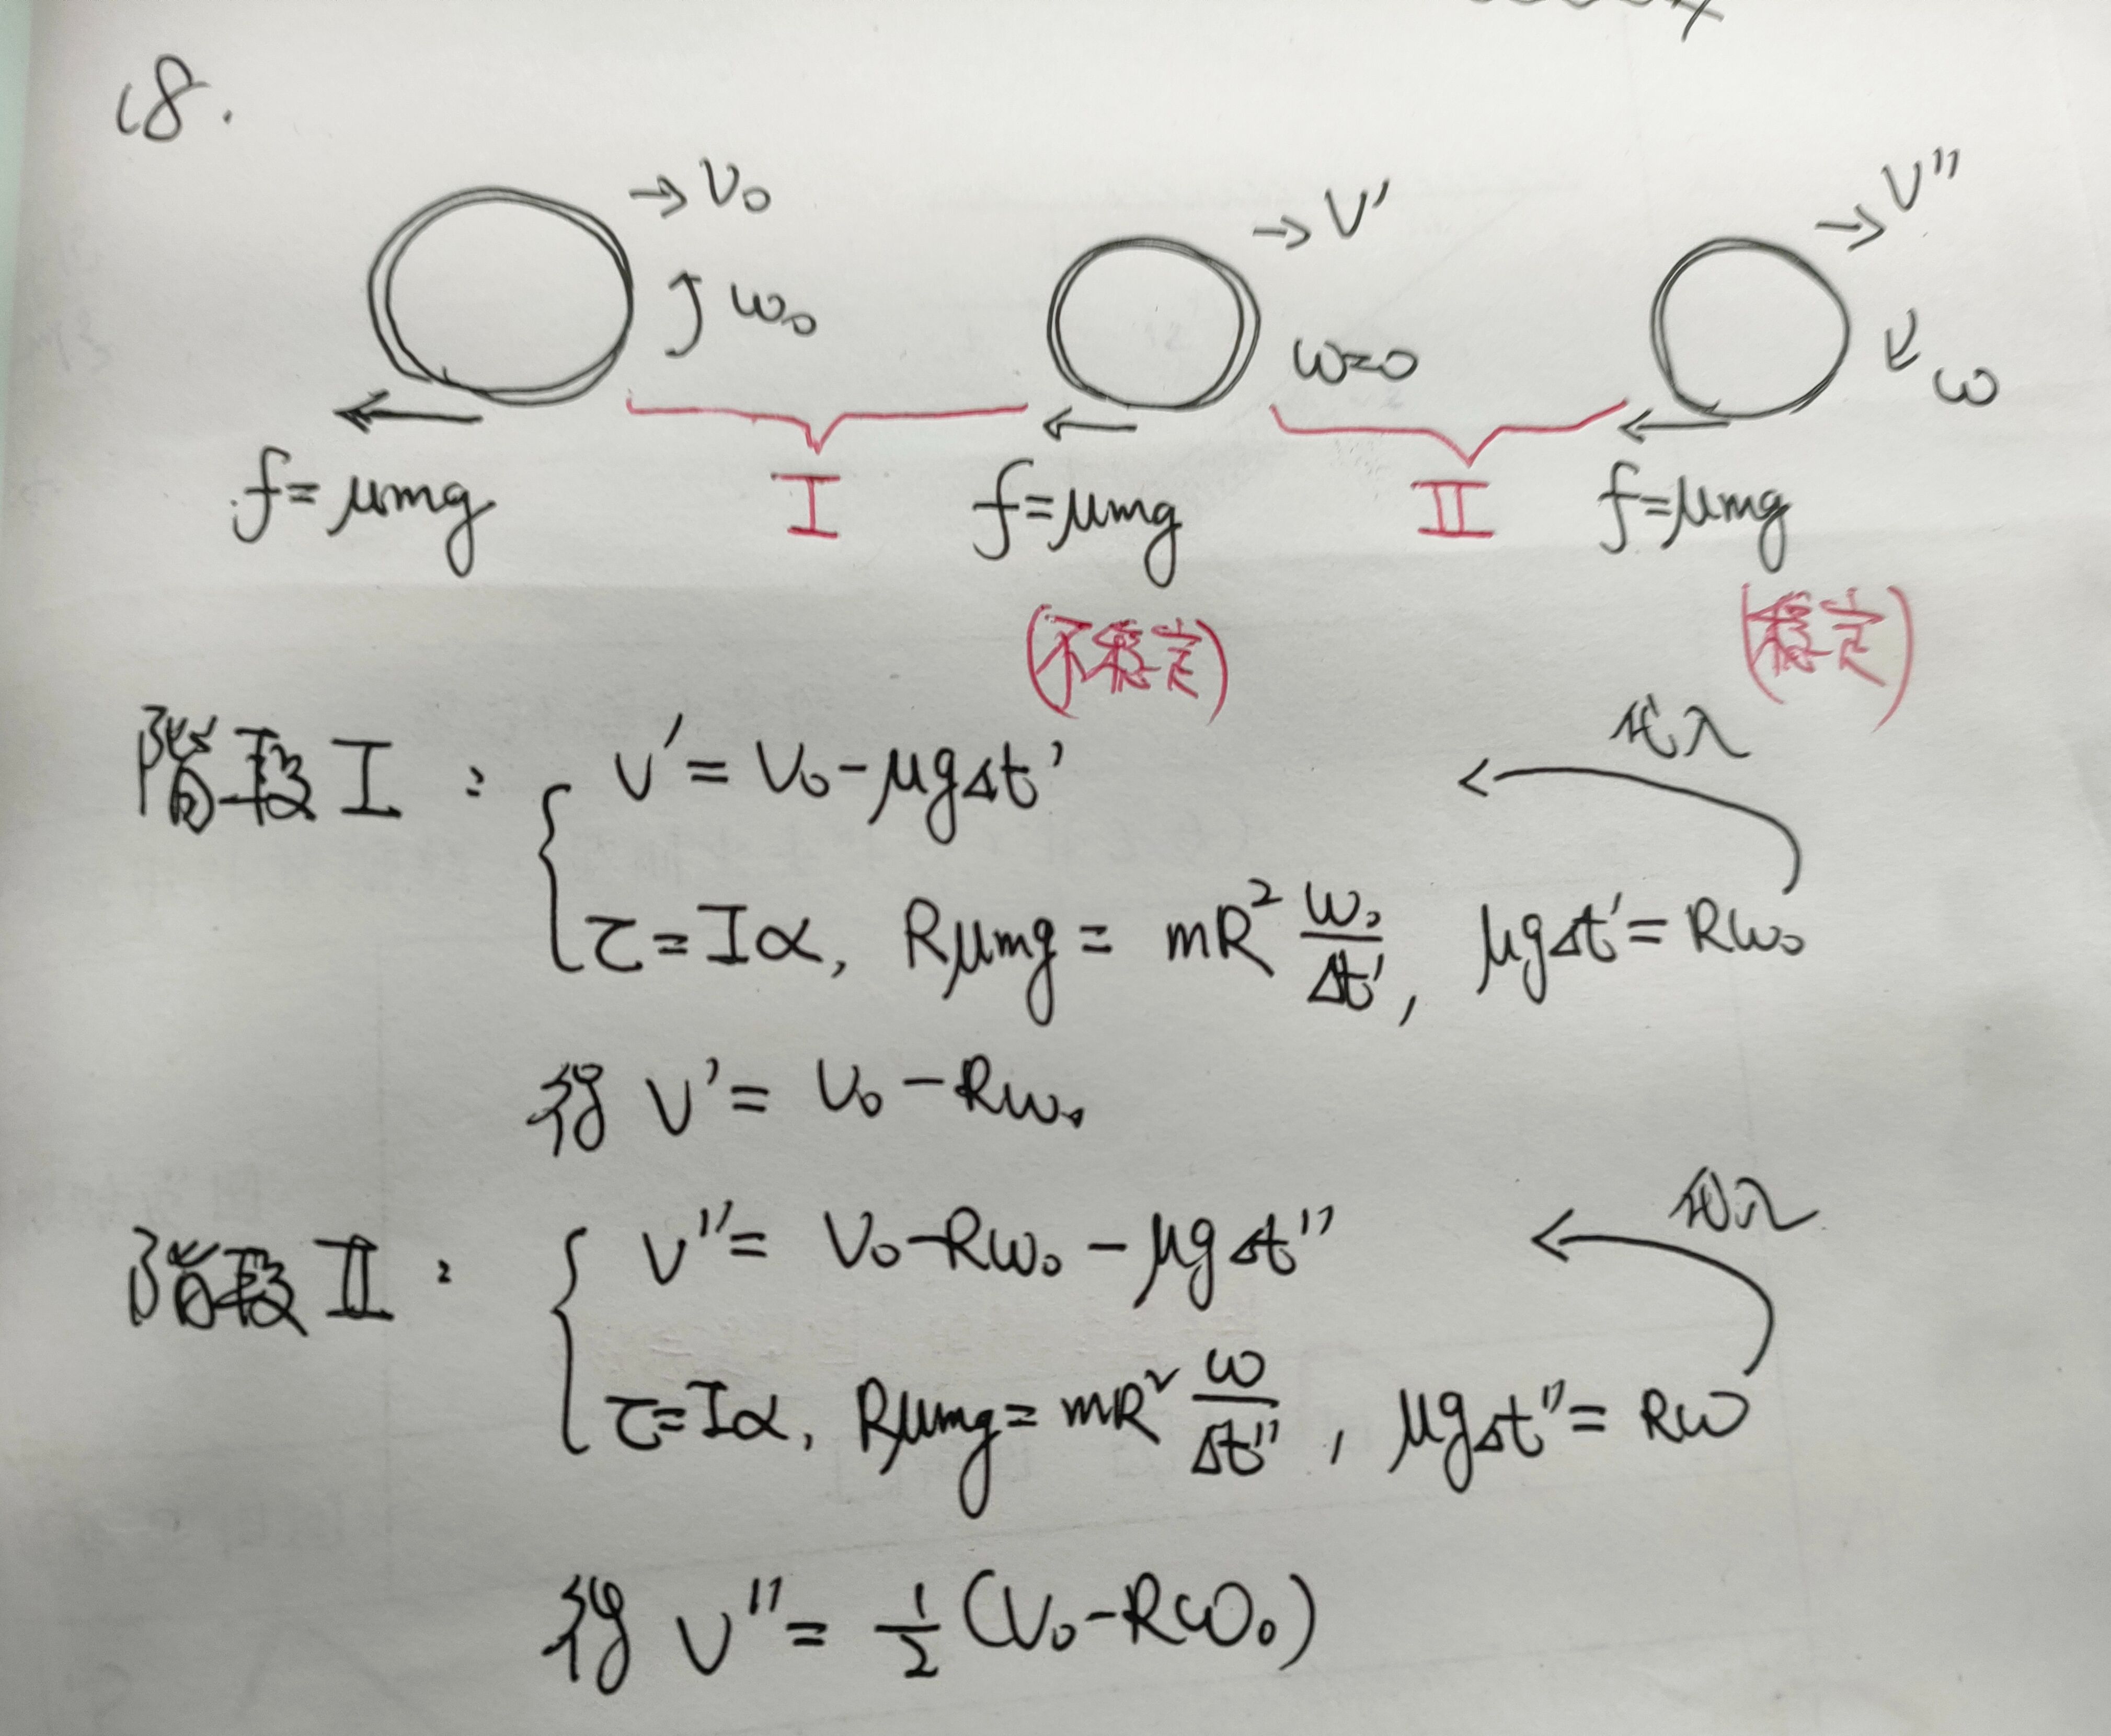 18.
→ V₀
ω₀
f=μmg
I
→ V′
ω=0
f=μmg
(不穩定)
II
→ V″
ω
f=μmg
(穩定)
階段 I : { V′= V₀-μgΔt′
代入
τ=Iα, Rμmg = mR² ω₀/Δt′, μgΔt′= Rω₀
得 V′= V₀-Rω₀
階段 II : { V″= V₀-Rω₀-μgΔt″
代入
τ=Iα, Rμmg= mR² ω/Δt″, μgΔt″= Rω
得 V″= 1/2 (V₀-Rω₀)